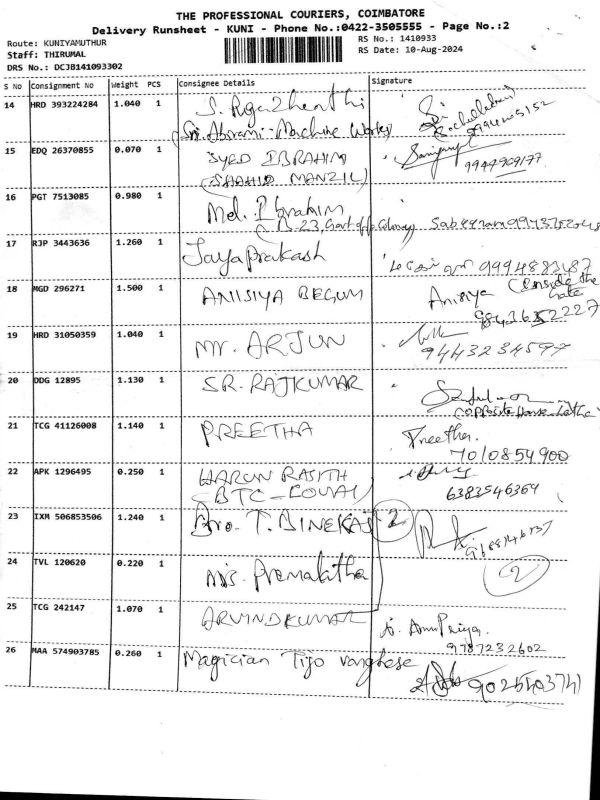 THE PROFESSIONAL COURIERS, COIMBATORE
Delivery Runsheet - KUNI - Phone No.:0422-3505555 - Page No.:2
Route: KUNIYAMUTHUR RS No.: 1410933
Staff: THIRUMAL RS Date: 10-Aug-2024
DRS No.: DCJB141093302
S No Consignment No Weight PCS Consignee Details Signature
14 HRD 393224284 1.040 1 S.
(Sri Abirami Machine Works)
15 EDQ 26370855 0.070 1 SYED IBRAHIM
(SHAHID MANZIL) 9944909177
16 PGT 7513085 0.980 1 Md. Ibrahim
17 RJP 3443636 1.260 1 Jayaprakash
18 MGD 296271 1.500 1 ANISIYA BEGUM Anisiya (Inside the Gate)
19 HRD 31050359 1.040 1 Mr. ARJUN
9443234597
20 DDG 12895 1.130 1 SR. RAJKUMAR
(opposite House
21 TCG 41126008 1.140 1 PREETHA Preetha.
7010854900
22 APK 1296495 0.250 1 HARUN RASITH
(BTC - KOVAI) 6383546369
23 IXM 506853506 1.240 1 Bro. T. 2
24 TVL 120620 0.220 1 Mrs. Premalatha 2
25 TCG 242147 1.070 1 ARVINDKUMAR Anu Priya.
9787232602
26 MAA 574903785 0.260 1 Magician Tijo varghese